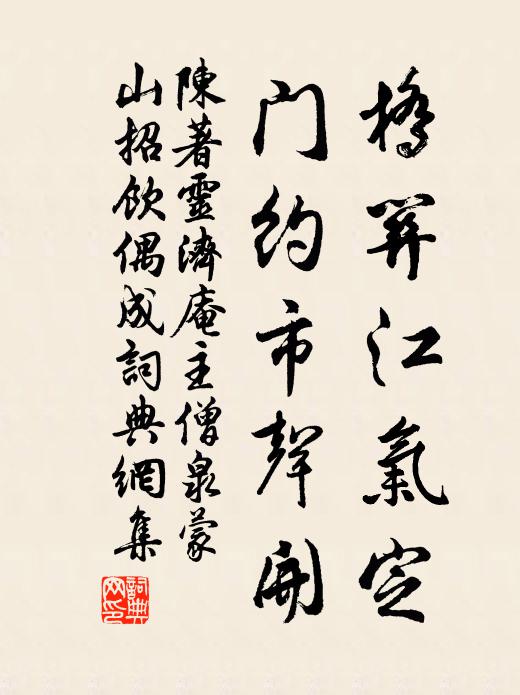 橋江氣定
門約市聲開
陳著靈濟庵主僧泉蒙
山招飲偶成詞典網集
詞典
网印